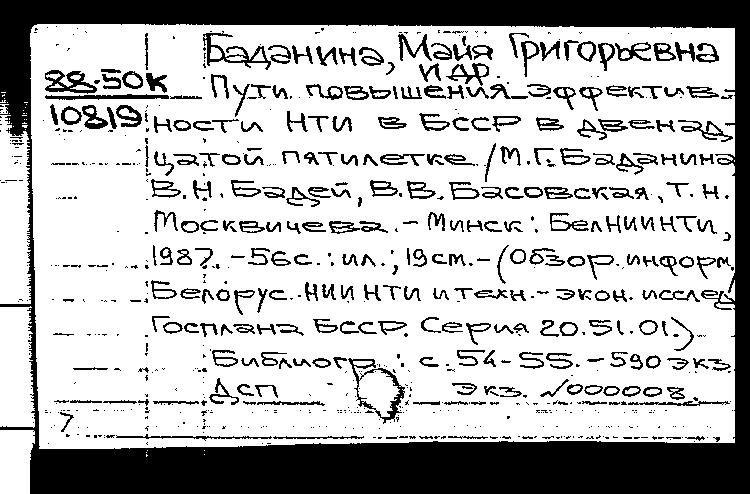 Баданина, Майя Григорьевна
и др.
88-50к
Пути повышения эффектив-
10819
ности НТИ в БССР в двенад-
цатой пятилетке / М.Г. Баданина
В.Н. Бадей, В.В. Басовская, Т.Н.
Москвичева. - Минск: БелНИИНТИ,
1987. - 56с. : ил.; 19см. - (Обзор. информ.
Белорус. НИИ НТИ и техн.-экон. исслед
Госплана БССР. Серия 20.51.01.)
Библиогр.: с. 54-55. - 590 экз.
ДСП экз. №000008.
7